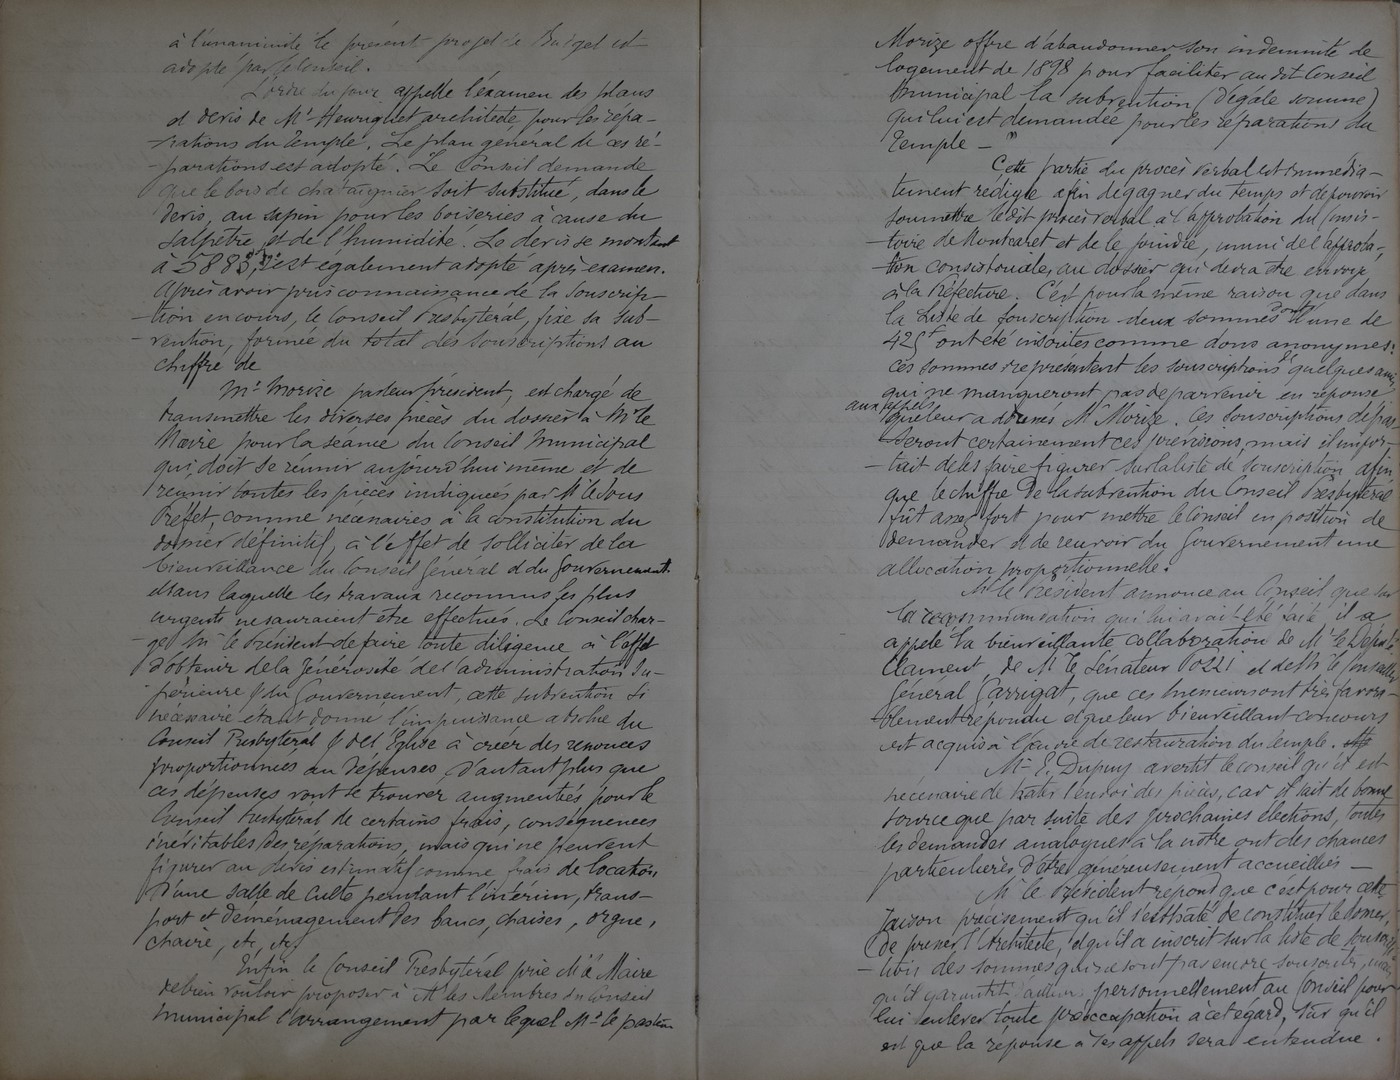 à l'unanimité le présent projet de Budget est
adopté par le Conseil.
L'ordre du jour appelle l'examen des plans
et devis de Mr Henriquet architecte pour les répa-
-rations du Temple. Le plan général de ces ré-
-parations est adopté. Le Conseil demande
que le bois de chataignier soit substitué, dans le
devis, au sapin pour les boiseries à cause du
salpêtre et de l'humidité. Le devis se montant
à 5883, est également adopté après examen.
Après avoir pris connaissance de la souscrip-
-tion en cours, le Conseil Presbytéral, fixe sa sub-
-vention, formée du total des souscriptions au
chiffre de
Mr Morize pasteur président, est chargé de
transmettre les diverses pièces du dossier à Mr le
Maire pour la séance du Conseil Municipal
qui doit se réunir aujourd'hui même et de
réunir toutes les pièces indiquées par Mr le Sous
Préfet, comme nécessaires à la constitution du
dossier définitif, à l'effet de solliciter de la
bienveillance du Conseil Général et du Gouvernement
sans laquelle les travaux reconnus les plus
urgents ne sauraient être effectués. Le Conseil char-
-ge Mr le Président de faire toute diligence à l'effet
d'obtenir de la générosité de l'administration Su-
-périeure & du Gouvernement, cette subvention si
nécessaire étant donné l'impuissance absolue du
Conseil Presbytéral & de l'Eglise à créer des ressources
proportionnées au dépenses, d'autant plus que
ces dépenses vont se trouver augmentées pour le
Conseil Presbytéral de certains frais, conséquences
inévitables des réparations, mais qui ne peuvent
figurer au devis estimatif comme frais de location
d'une salle de culte pendant l'intérim, trans-
port et déménagement des bancs, chaises, orgue,
chaire, etc, etc,
Enfin le Conseil Presbytéral prie Mr le Maire
de bien vouloir proposer à Mrs les Membres du Conseil
Municipal l'arrangement par lequel Mr le pasteur
Morize offre d'abandonner son indemnité de
logement de 1898 pour faciliter au dit Conseil
Municipal la subvention (d'égale somme)
qui lui est demandée pour les réparations du
Temple —
Cette partie du procès verbal est immédia-
tement rédigée afin de gagner du temps et de pouvoir
soumettre le dit procès verbal à l'approbation du Consis-
-toire de Montcaret et de le joindre, muni de l'approba-
-tion consistoriale, au dossier qui devra être envoyé
à la Préfecture. C'est pour la même raison que dans
la Liste de souscription deux sommes dont l'une de
425f ont été inscrites comme dons anonymes:
ces sommes représentent les souscriptions de quelques amis
qui ne manqueront pas de parvenir en réponse
aux appels
que leur a adressés Mr Morize. Ces souscriptions dépas-
-seront certainement ces prévisions, mais il impor-
-tait de les faire figurer sur la liste de souscription afin
que le chiffre de la subvention du Conseil Presbytéral
fût assez fort pour mettre le Conseil en position de
demander et de recevoir du Gouvernement une
allocation proportionnelle.
Mr le Président annonce au Conseil que sur
la recommandation qui lui avait été faite il a
appelé la bienveillante collaboration de Mr le Député
Clament, de Mr le Sénateur Pozzi et de Mr le Conseiller
Général Garrigat, que ces messieurs ont très favora-
-blement répondu et que leur bienveillant concours
est acquis à l'œuvre de restauration du temple.
Mr E. Dupuy avertit le conseil qu'il est
nécessaire de hâter l'envoi des pièces, car il sait de bonne
source que par suite des prochaines élections, toutes
les demandes analogues à la nôtre ont des chances
particulières d'être généreusement accueillies —
Mr le Président répond que c'est pour cette
raison précisément qu'il s'est hâté de constituer le dossier,
de presser l'Architecte, et qu'il a inscrit sur la liste de souscrip-
-tion des sommes qui ne sont pas encore souscrites, mais
qu'il garantit personnellement au Conseil pour
lui enlever toute préoccupation à cet égard, sûr qu'il
est que la réponse à ses appels sera entendue.